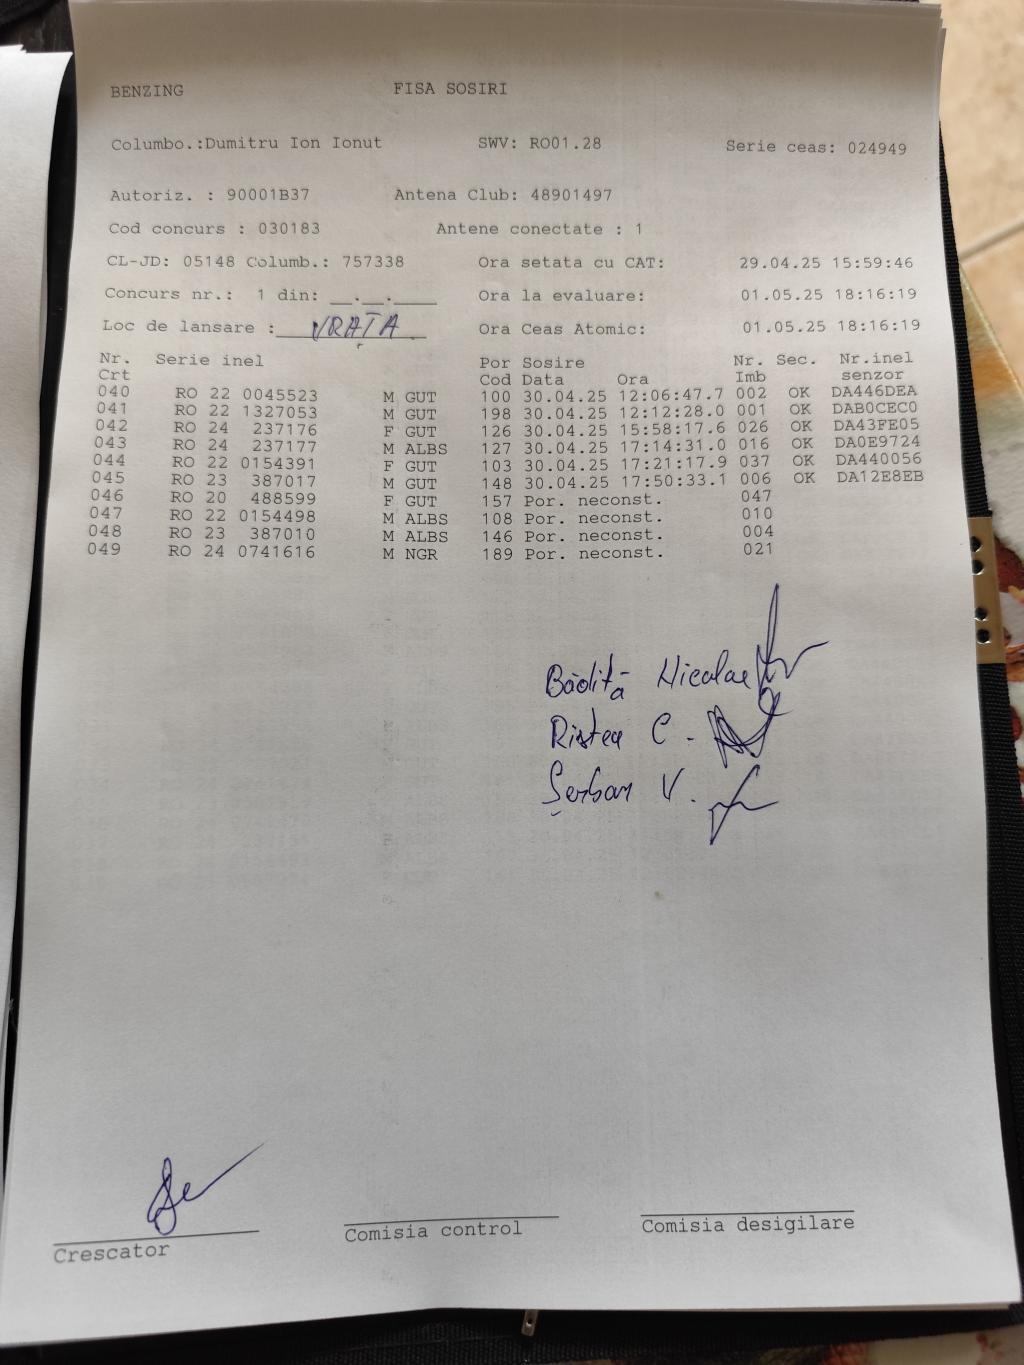 BENZING FISA SOSIRI
Columbo.:Dumitru Ion Ionut SWV: RO01.28 Serie ceas: 024949
Autoriz. : 90001B37 Antena Club: 48901497
Cod concurs : 030183 Antene conectate : 1
CL-JD: 05148 Columb.: 757338 Ora setata cu CAT: 29.04.25 15:59:46
Concurs nr.: 1 din: __.__.____ Ora la evaluare: 01.05.25 18:16:19
Loc de lansare : VRAȚA Ora Ceas Atomic: 01.05.25 18:16:19
Nr. Serie inel Por Sosire Nr. Sec. Nr.inel
Crt Cod Data Ora Imb senzor
040 RO 22 0045523 M GUT 100 30.04.25 12:06:47.7 002 OK DA446DEA
041 RO 22 1327053 M GUT 198 30.04.25 12:12:28.0 001 OK DAB0CEC0
042 RO 24 237176 F GUT 126 30.04.25 15:58:17.6 026 OK DA43FE05
043 RO 24 237177 M ALBS 127 30.04.25 17:14:31.0 016 OK DA0E9724
044 RO 22 0154391 F GUT 103 30.04.25 17:21:17.9 037 OK DA440056
045 RO 23 387017 M GUT 148 30.04.25 17:50:33.1 006 OK DA12E8EB
046 RO 20 488599 F GUT 157 Por. neconst. 047
047 RO 22 0154498 M ALBS 108 Por. neconst. 010
048 RO 23 387010 M ALBS 146 Por. neconst. 004
049 RO 24 0741616 M NGR 189 Por. neconst. 021
Bădiță Nicolae
Ristea C.
Șerban V.
Crescator Comisia control Comisia desigilare